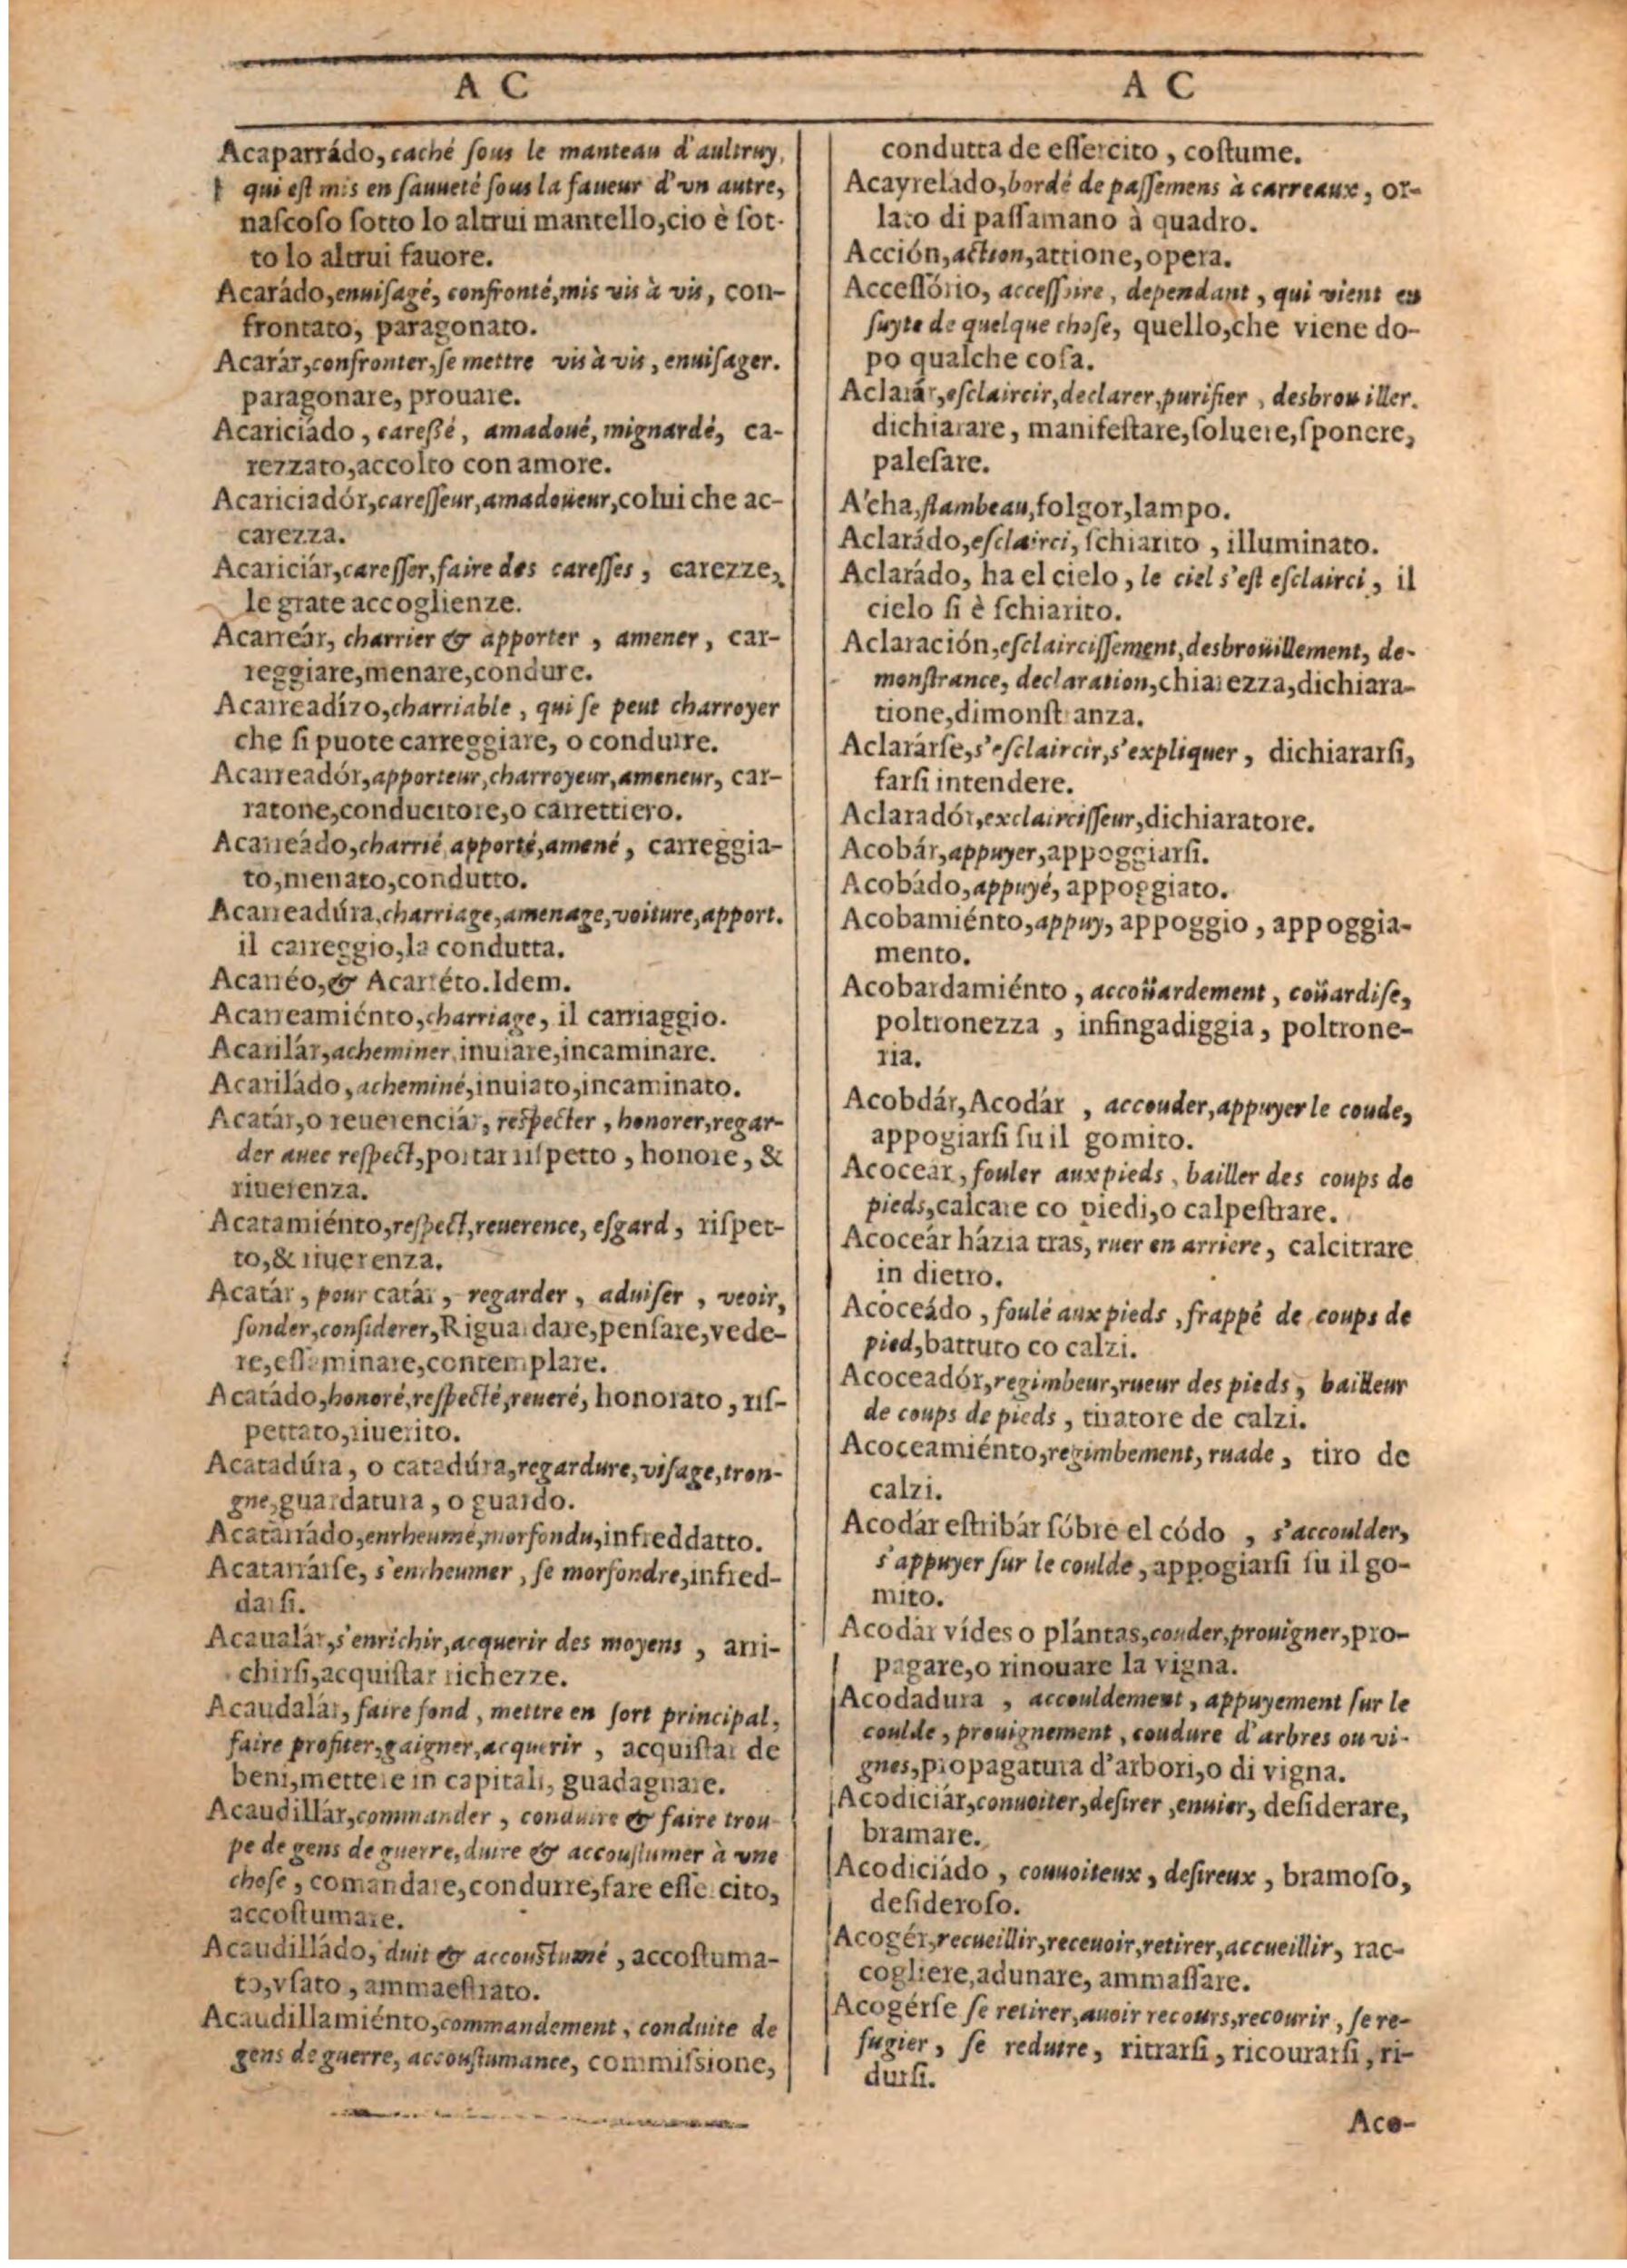 A C
Acaparrádo, caché ſous le manteau d'aultruy,
qui eſt mis en ſauueté ſous la faueur d'vn autre,
naſcoſo ſotto lo altrui mantello, cio è ſot-
to lo altrui fauore.
Acarádo, enuiſagé, confronté, mis vis à vis, con-
frontato, paragonato.
Acarár, confronter, ſe mettre vis à vis, enuiſager.
paragonare, prouare.
Acariciádo, careßé, amadoué, mignardé, ca-
rezzato, accolto con amore.
Acariciadór, careſſeur, amadoüeur, colui che ac-
carezza.
Acariciár, careſſer, faire des careſſes, carezze,
le grate accoglienze.
Acarreár, charrier & apporter, amener, car-
reggiare, menare, condure.
Acarreadízo, charriable, qui ſe peut charroyer
che ſi puote carreggiare, o condurre.
Acarreadór, apporteur, charroyeur, ameneur, car-
ratone, conducitore, o carrettiero.
Acarreádo, charrié, apporté, amené, carreggia-
to, menato, condutto.
Acarreadúra, charriage, amenage, voiture, apport.
il carreggio, la condutta.
Acarréo, & Acarréto. Idem.
Acarreamiénto, charriage, il carriaggio.
Acarilár, acheminer, inuiare, incaminare.
Acariládo, acheminé, inuiato, incaminato.
Acatár, o reuerenciár, reſpecter, honorer, regar-
der auec reſpect, portar riſpetto, honore, &
riuerenza.
Acatamiénto, reſpect, reuerence, eſgard, riſpet-
to, & riuerenza.
Acatár, pour catár, regarder, aduiſer, veoir,
ſonder, conſiderer, Riguardare, penſare, vede-
re, eſſaminare, contemplare.
Acatádo, honoré, reſpecté, reueré, honorato, riſ-
pettato, riuerito.
Acatadúra, o catadúra, regardure, viſage, tron-
gne, guardatura, o guardo.
Acatarrádo, enrheumé, morfondu, infreddatto.
Acatarrárſe, s'enrheumer, ſe morfondre, infred-
darſi.
Acaualár, s'enrichir, acquerir des moyens, arri-
chirſi, acquiſtar richezze.
Acaudalár, faire fond, mettre en ſort principal,
faire profiter, gaigner, acquerir, acquiſtar de
beni, mettere in capitali, guadagnare.
Acaudillár, commander, conduire & faire trou-
pe de gens de guerre, duire & accouſtumer à vne
choſe, comandare, condurre, fare eſſercito,
accoſtumare.
Acaudilládo, duit & accouſtumé, accoſtuma-
to, vſato, ammaeſtrato.
Acaudillamiénto, commandement, conduite de
gens de guerre, accouſtumance, commiſsione,
A C
condutta de eſſercito, coſtume.
Acayreládo, bordé de paſſemens à carreaux, or-
lato di paſſamano à quadro.
Acción, action, attione, opera.
Acceſſório, acceſſoire, dependant, qui vient en
ſuyte de quelque choſe, quello, che viene do-
po qualche coſa.
Aclarár, eſclaircir, declarer, purifier, desbrouiller.
dichiarare, manifeſtare, ſoluere, ſponere,
paleſare.
A'cha, flambeau, folgor, lampo.
Aclarádo, eſclairci, ſchiarito, illuminato.
Aclarádo, ha el cielo, le ciel s'eſt eſclairci, il
cielo ſi è ſchiarito.
Aclaración, eſclairciſſement, desbroüillement, de-
monſtrance, declaration, chiarezza, dichiara-
tione, dimonſtranza.
Aclarárſe, s'eſclaircir, s'expliquer, dichiararſi,
farſi intendere.
Aclaradór, exclairciſſeur, dichiaratore.
Acobár, appuyer, appoggiarſi.
Acobádo, appuyé, appoggiato.
Acobamiénto, appuy, appoggio, appoggia-
mento.
Acobardamiénto, accoüardement, coüardiſe,
poltronezza, infingadiggia, poltrone-
ria.
Acobdár, Acodár, accouder, appuyer le coude,
appogiarſi ſu il gomito.
Acoceár, fouler aux pieds, bailler des coups de
pieds, calcare co piedi, o calpeſtrare.
Acoceár házia tras, ruer en arriere, calcitrare
in dietro.
Acoceádo, foulé aux pieds, frappé de coups de
pied, battuto co calzi.
Acoceadór, regimbeur, rueur des pieds, bailleur
de coups de pieds, tiratore de calzi.
Acoceamiénto, regimbement, ruade, tiro de
calzi.
Acodár eſtribár ſóbre el códo, s'accoulder,
s'appuyer ſur le coulde, appogiarſi ſu il go-
mito.
Acodár vídes o plántas, couder, prouigner, pro-
pagare, o rinouare la vigna.
Acodadura, accouldement, appuyement ſur le
coulde, prouignement, coudure d'arbres ou vi-
gnes, propagatura d'arbori, o di vigna.
Acodiciár, conuoiter, deſirer, enuier, deſiderare,
bramare.
Acodiciádo, conuoiteux, deſireux, bramoſo,
deſideroſo.
Acogér, recueillir, receuoir, retirer, accueillir, rac-
cogliere, adunare, ammaſſare.
Acogérſe ſe retirer, auoir recours, recourir, ſe re-
fugier, ſe reduire, ritrarſi, ricourarſi, ri-
durſi.
Aco-